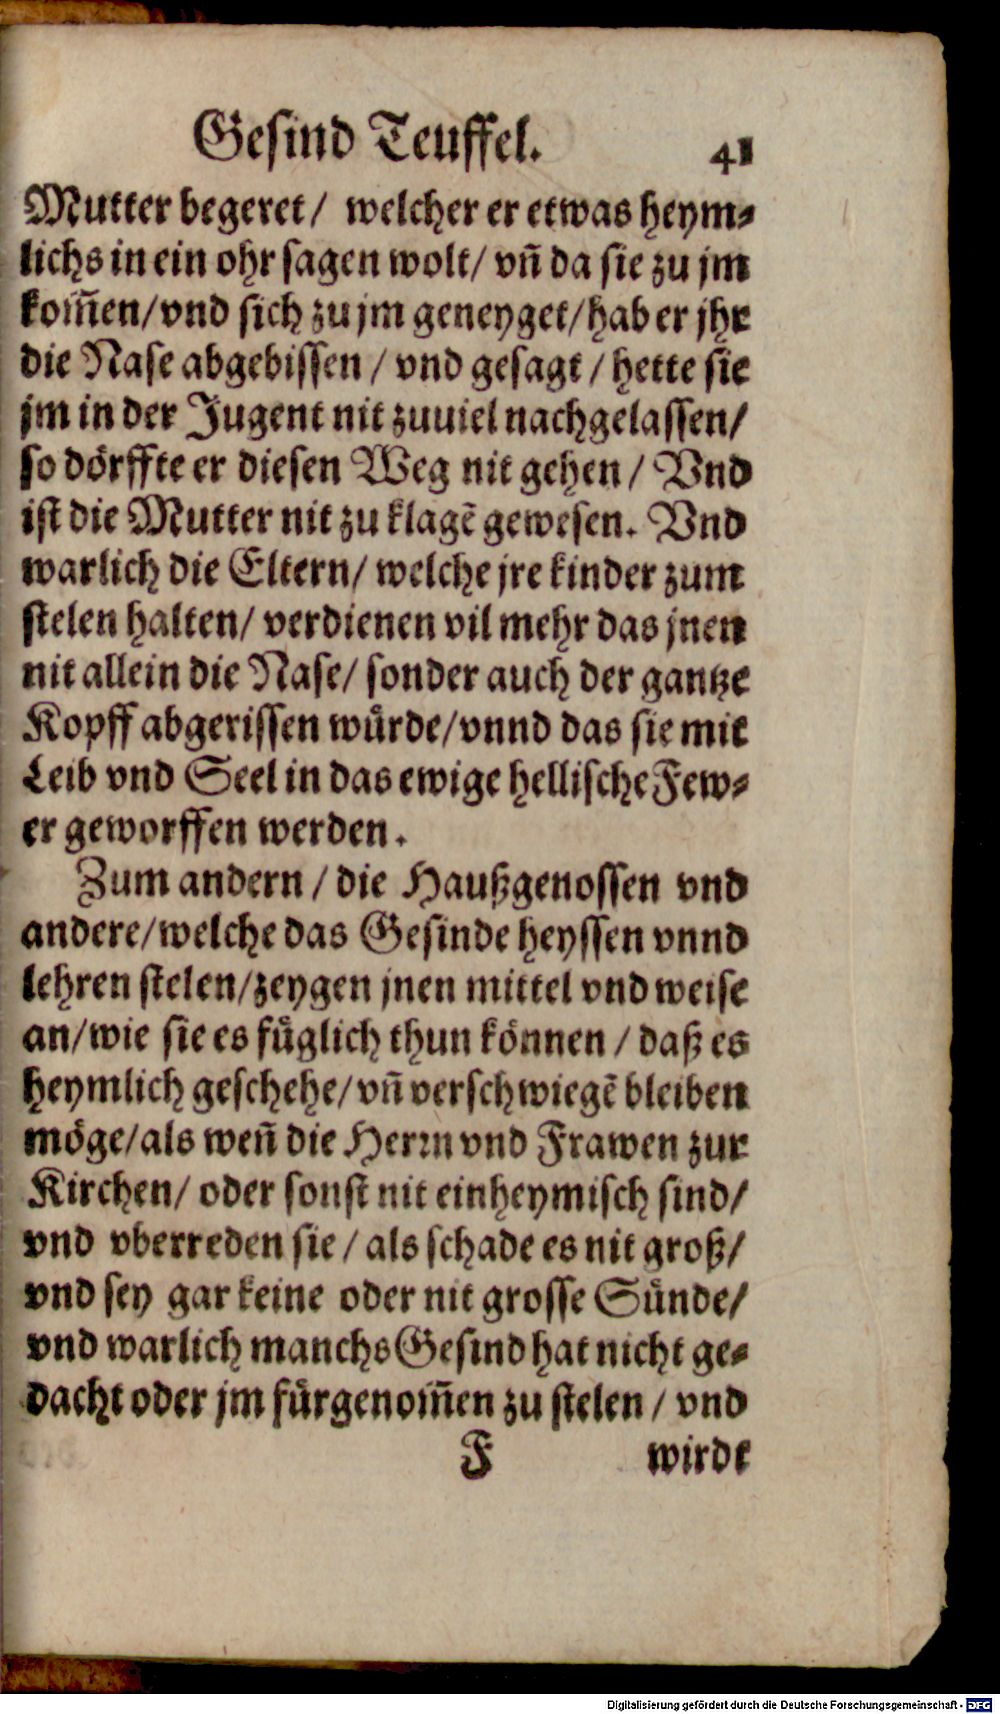 Gesind Teuffel. 41
Mutter begeret / welcher er etwas heym⸗
lichs in ein ohr sagen wolt / vñ da sie zu jm
kom̃en / vnd sich zu jm geneyget / hab er jhr
die Nase abgebissen / vnd gesagt / hette sie
jm in der Jugent nit zuuiel nachgelassen /
so dörffte er diesen Weg nit gehen / Vnd
ist die Mutter nit zu klagẽ gewesen. Vnd
warlich die Eltern / welche jre kinder zum
stelen halten / verdienen vil mehr das jnen
nit allein die Nase / sonder auch der gantze
Kopff abgerissen würde / vnnd das sie mit
Leib vnd Seel in das ewige hellische Few⸗
er geworffen werden.
Zum andern / die Haußgenossen vnd
andere / welche das Gesinde heyssen vnnd
lehren stelen / zeygen jnen mittel vnd weise
an / wie sie es füglich thun können / daß es
heymlich geschehe / vñ verschwiegẽ bleiben
möge / als weñ die Herrn vnd Frawen zur
Kirchen / oder sonst nit einheymisch sind /
vnd vberreden sie / als schade es nit groß /
vnd sey gar keine oder nit grosse Sünde /
vnd warlich manchs Gesind hat nicht ge⸗
dacht oder jm fürgenom̃en zu stelen / vnd
F wirdt
Digitalisierung gefördert durch die Deutsche Forschungsgemeinschaft - DFG